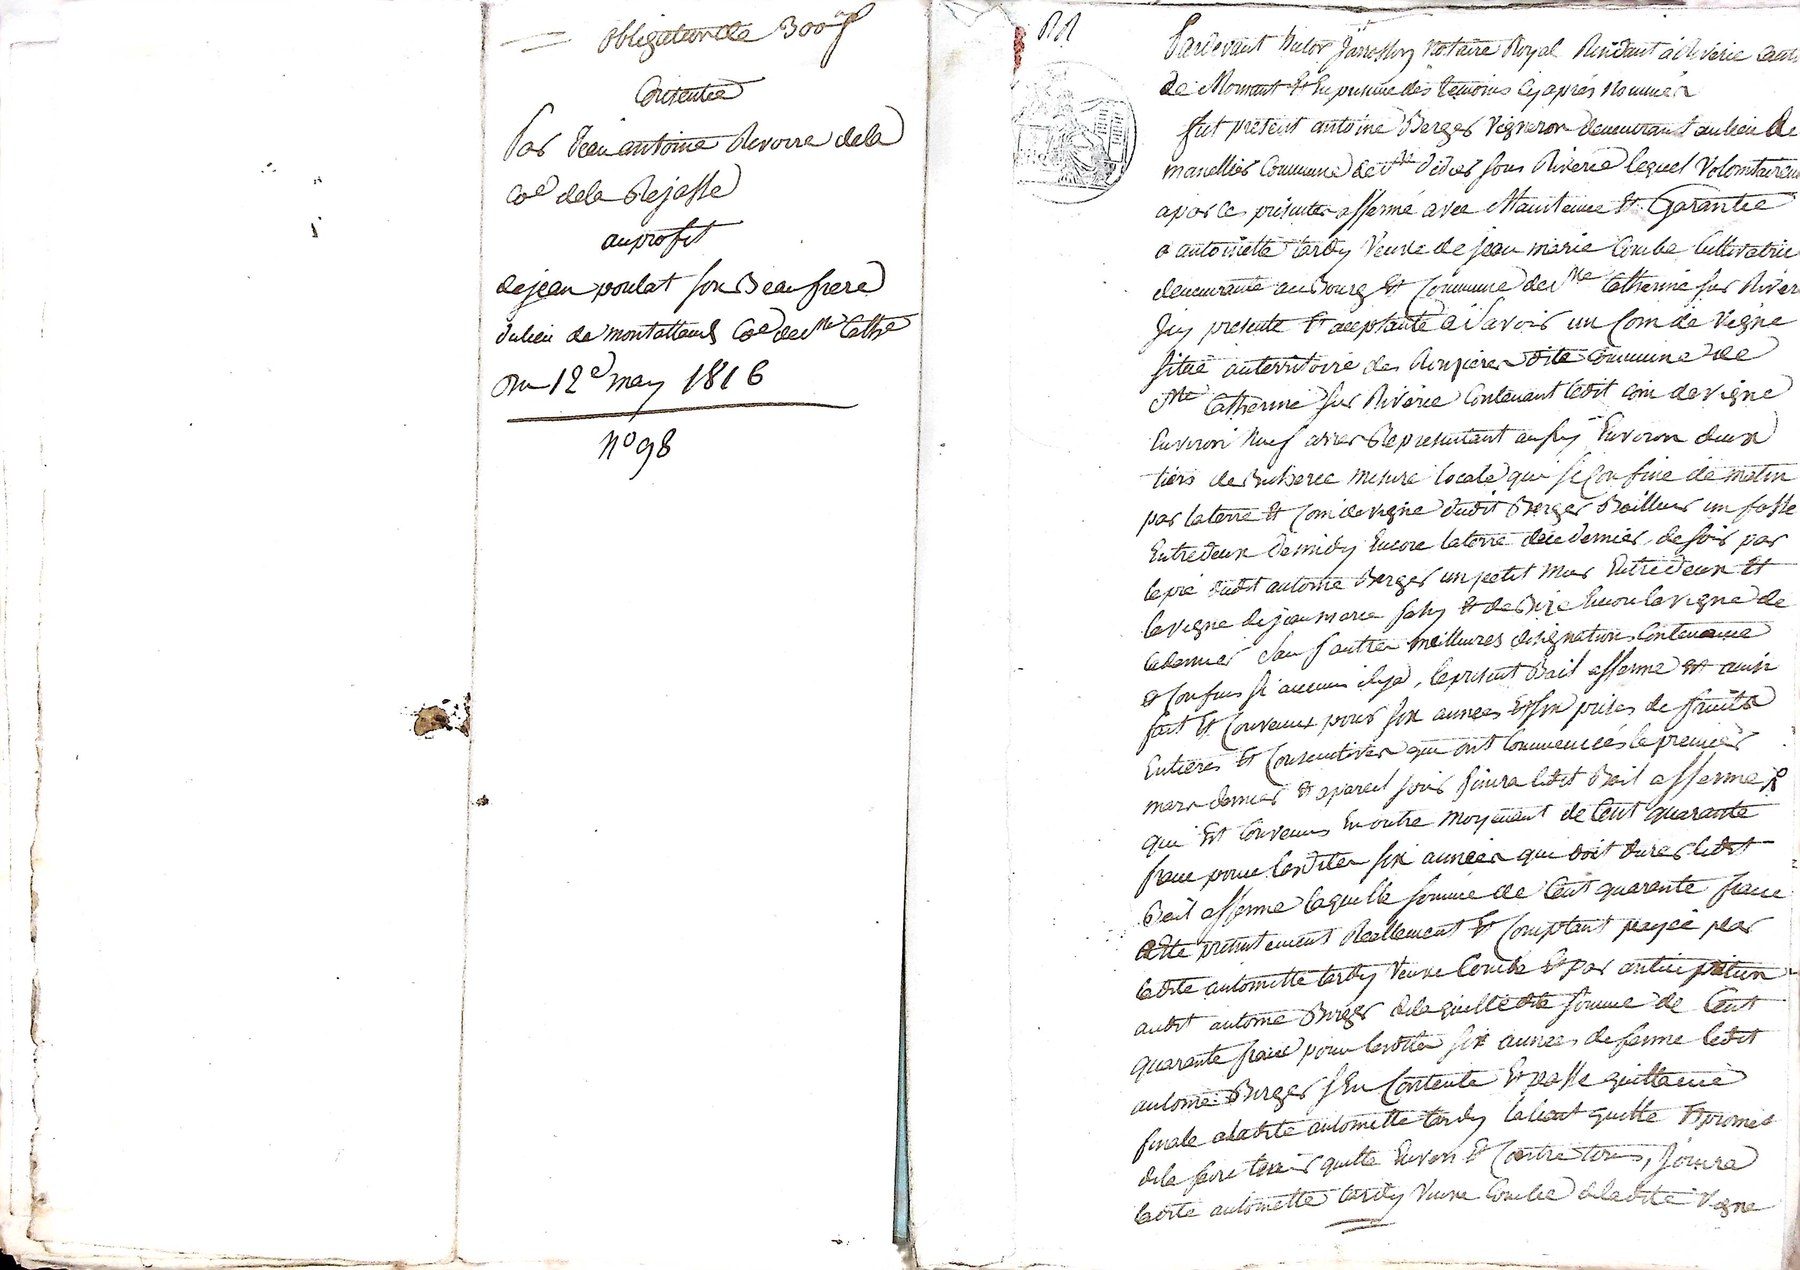 obligation de 300 f
Consentie
Par Jean antoine Rivoire dela
Coe dela Rejasse
au profit
de jean poulat son Beaufrere
du lieu de montattent Coe de Ste Cathe
Du 12e may 1816
n° 98
Pardevant notaire Royal Résidant à Riverie canton
de Mornant Et En presence des temoins cy après nommés
fut présent antoine Berger vigneron demeurant au lieu de
manellier Commune de St didier sous Riverie lequel Volontairement
a par ces présentes affermé avec Maintenue Et Garantie
a antoinette tardy Veuve de jean marie Combe Cultivatrice
demeurante au Bourg Et Commune de Ste Catherine sur Riverie
Icy presente Et acceptante a Savoir un Coin de vigne
situé au territoire des dite Commune de
Ste Catherine sur Riverie Contenant ledit coin de vigne
Environ neuf ares Representant ansy Environ deux
tiers de Bicherée mesure locale qui se Confine de matin
par la terre Et Coin de vigne dudit Berger Bailleur un fosse
Entredeux de midy Encore la terre de ce dernier, de soir par
le pré dudit antoine Berger un petit mur Entredeux Et
la vigne de jean marie Et de Bize Encore la vigne de
ce dernier Sauf autres meilleures désignations Contenance
et Confins si aucuns il y a, le présent Bail afferme Et ainsi
fait Et Convenu pour six années Et six prises de fruits
Entieres Et Consecutives qui ont Commencées le premier
mars dernier Et a pareil jour finira ledit Bail afferme
qui Est Convenu En outre moyenant de Cent quarante
franc pour lesdites six années que doit durer ledit
Bail afferme laquelle somme de Cent quarante franc
a Ete presentement Reellement Et Comptant payée par
ladite antoinette tardy Veuve Combe Et par anticipation
audit antoine Berger de laquelle dite somme de Cent
quarante franc pour lesdites six années de ferme ledit
antoine Berger s'En Contente Et passe quittance
finale a ladite antoinette tardy la tient quitte Et promet
de la faire tenir quitte Envers Et Contre tous, Jouira
ladite antoinette tardy Veuve Combe de ladite Vigne